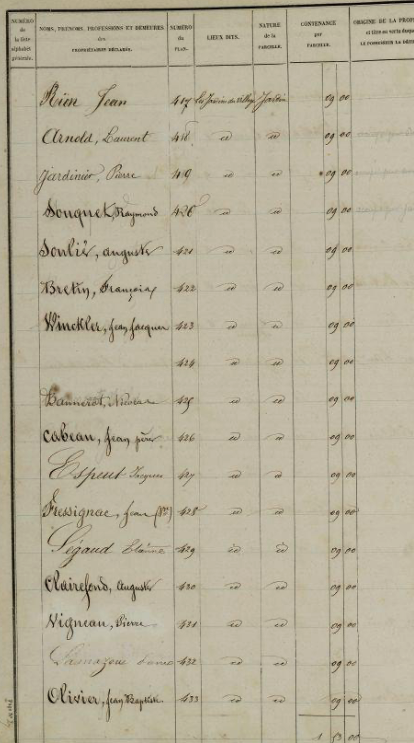 NUMÉRO de la liste alphabétique générale. NOMS, PRÉNOMS, PROFESSIONS ET DEMEURES des PROPRIÉTAIRES DÉCLARÉS. NUMÉRO du PLAN. LIEUX DITS. NATURE de la PARCELLE. CONTENANCE par PARCELLE. ORIGINE DE LA
Rien Jean 417 Les Jardins du Village Jardin 09 00
Arnold, Laurent 418 id id 09 00
Jardinier, Pierre 419 id id 09 00
Souquet, Raymond 420 id id 09 00
Soulié, auguste 421 id id 09 00
Bretin, François 422 id id 09 00
Winckler, Jean Jacques 423 id id 09 00
424 id id 09 00
Bannerot, Nicolas 425 id id 09 00
Cabeau, Jean père 426 id id 09 00
Espeut Jacques 427 id id 09 00
Fressignac, Jean 428 id id 09 00
Ségaud Etienne 429 id id 09 00
Clairefond, Auguste 430 id id 09 00
Vigneau, Pierre 431 id id 09 00
Lamazou 432 id id 09 00
Olivier, Jean Baptiste 433 id id 09 00
1 53 00